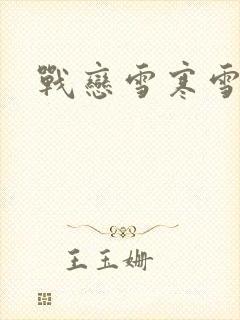 戰戀雪寒雪
王玉姍